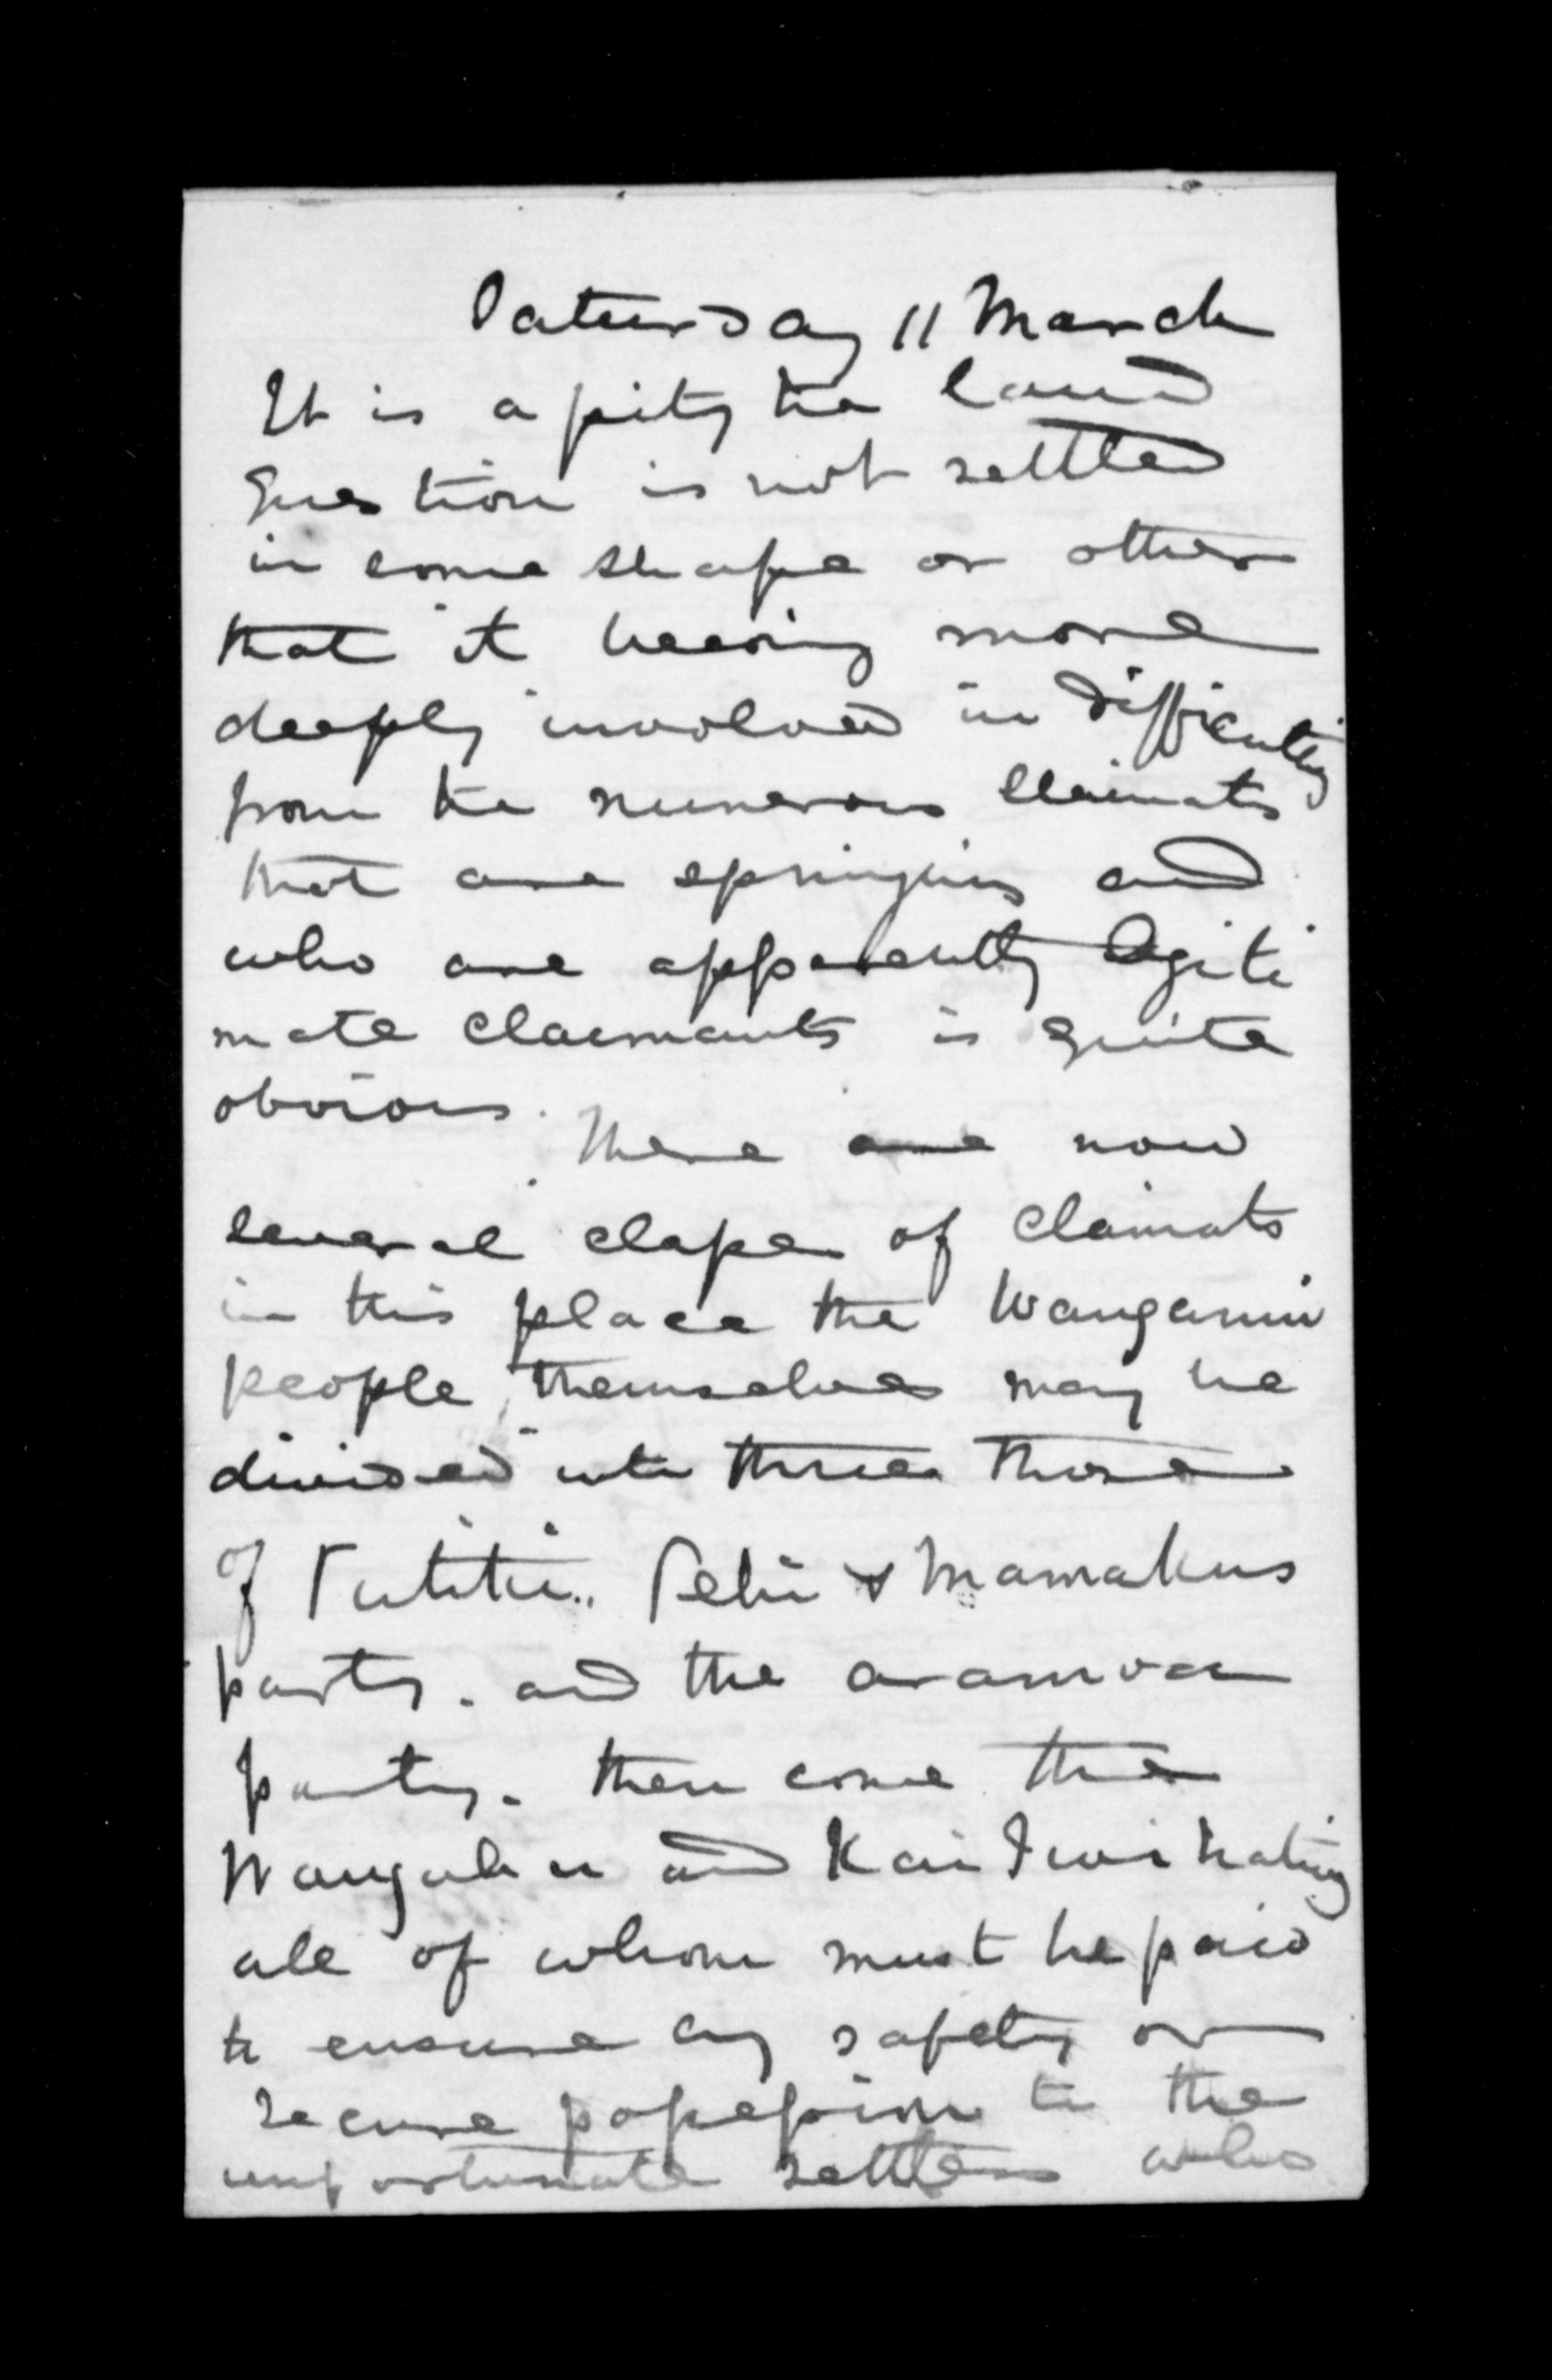 Saturday 11 March
It is a pity the land
question is not settled
in some shape or other
that it being more
deeply involved in difficulty
from the numerous claimats
that are springing and
who are apparently legiti
mate claimants is quite
obvious.
There are now
several classes of claimats
in this place the Wanganui
people themselves may be
divided into three those
of Pehi & Mamakus
party. and the aramoa
party. then come the
Wangahu and Kai Iwi
all of whom must be paid
to ensure any safety or
secure possession to the
unfortunate settlers who